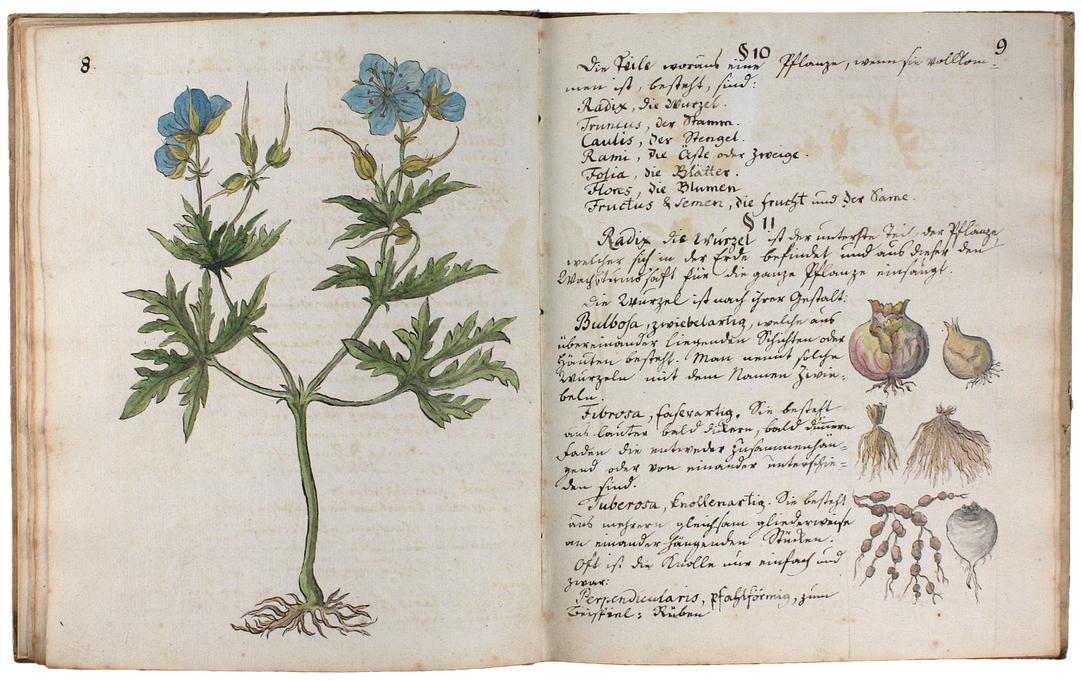 8
9
§ 10
Die Teile woraus eine Pflanze, wenn sie vollkom=
men ist, besteht, sind:
Radix, die Wurzel.
Truncus, der Stamm.
Caulis, der Stengel.
Rami, die Äste oder Zweige.
Folia, die Blätter.
Flores, die Blumen
Fructus & Semen, die frucht und der Same.
§ 11
Radix die Wurzel ist der unterste Teil, der Pflanze,
welcher sich in der Erde befindet und aus dieser den
Wachstumssaft für die ganze Pflanze einsaugt.
Die Wurzel ist nach ihrer Gestalt:
Bulbosa, zwiebelartig, welche aus
übereinander liegenden Schichten oder
Häuten besteht. Man nennt solche
Wurzeln mit dem Namen Zwie=
beln.
Fibrosa, faserartig. Sie besteht
aus lauter bald dickern, bald dünnern
Faden die entweder zusammenhän=
gend oder von einander unterschie=
den sind.
Tuberosa, knollenartig. Sie besteht
aus mehrern gleichsam gliederweise
an einander hängenden Stücken.
Oft ist die Knolle nur einfach und
zwar:
Perpendicularis, pfahlförmig, zum
Beispiel: Rüben